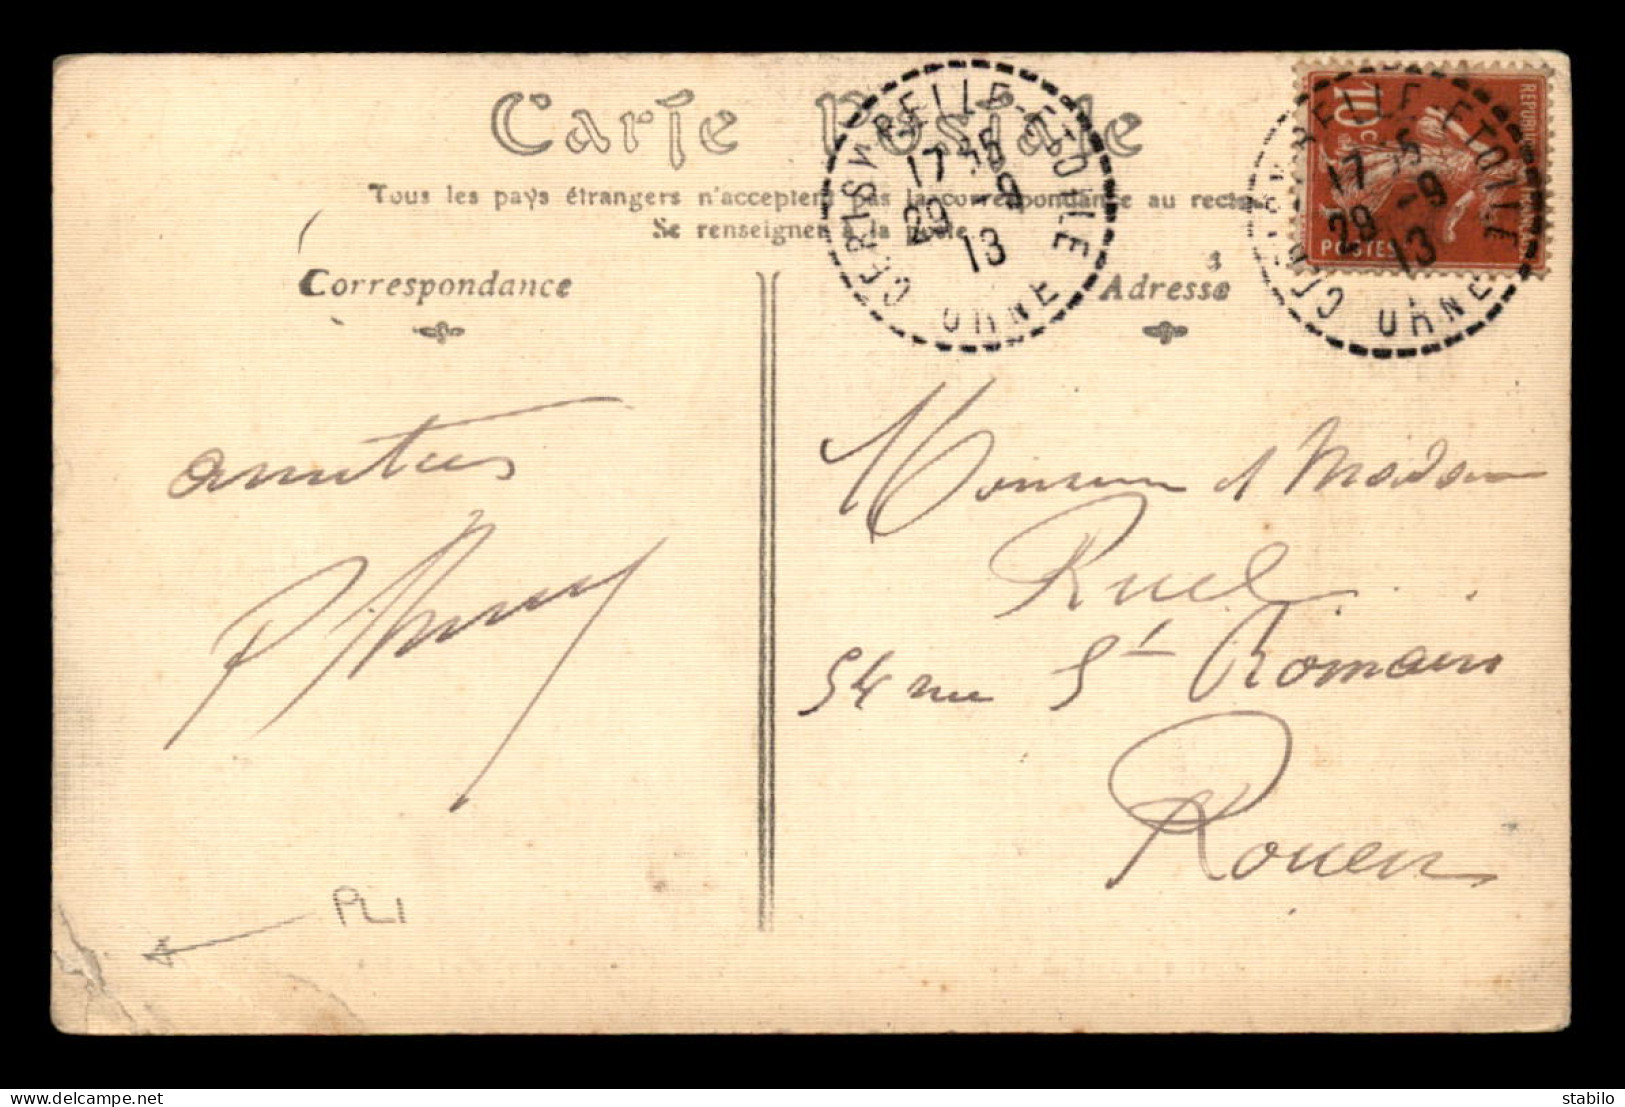 Carte Postale
Tous les pays étrangers n'acceptent pas la correspondance au recto
Se renseigner à la poste.
Correspondance
Adresse
CERISY BELLE-ETOILE
ORNE
17 35
29 -9
13
CERISY BELLE-ETOILE
ORNE
17 35
29 -9
13
10 c
POSTES
amitiés
Monsieur et Madame
Ruel
54 rue St Romain
Rouen
PLI
PLI
stabilo